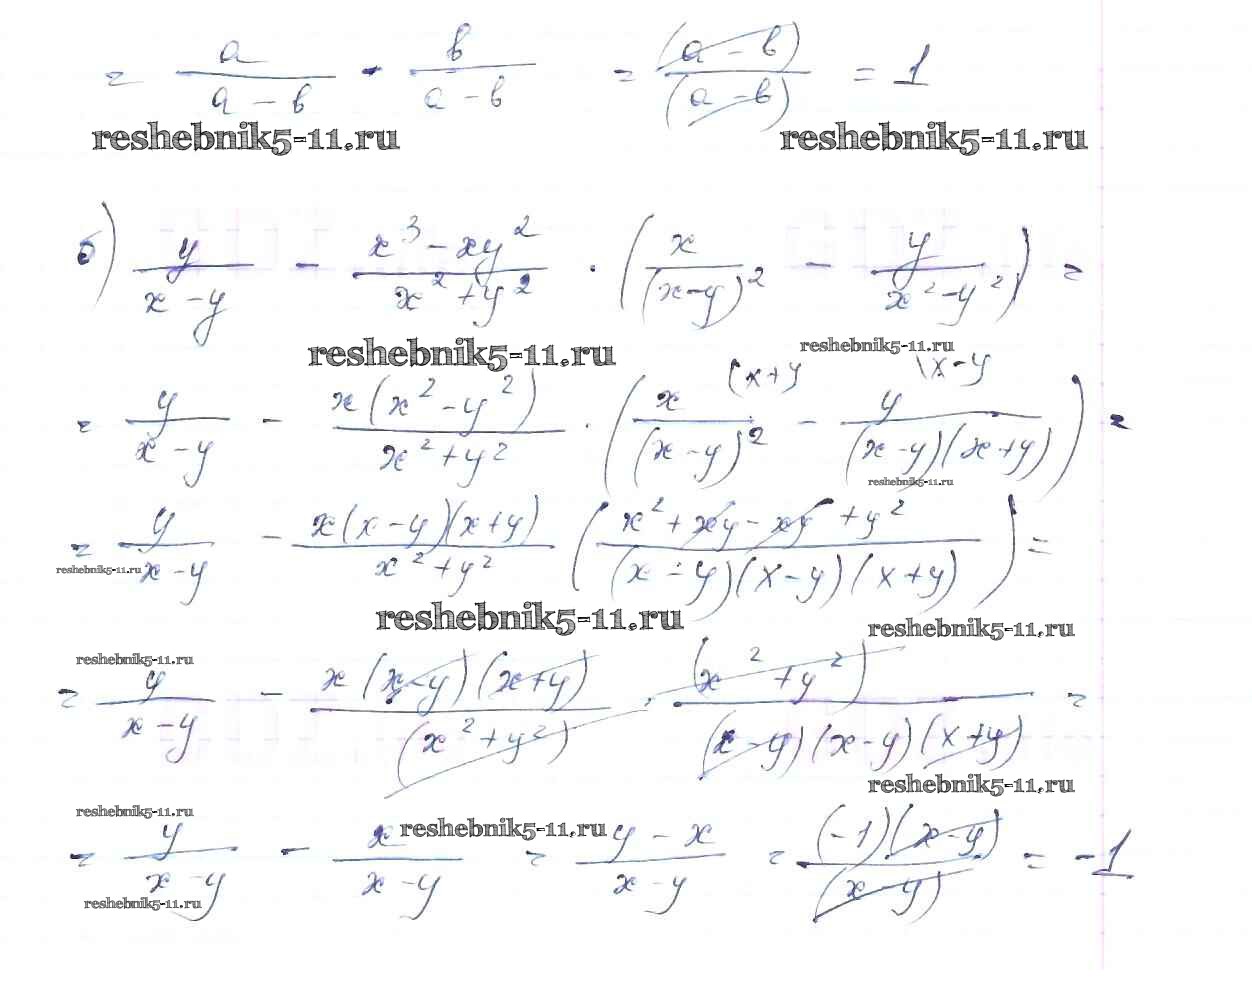 = a/(a - b) - b/(a - b) = (a - b)/(a - b) = 1
reshebnik5-11.ru reshebnik5-11.ru
б) y/(x - y) - (x³ - xy²)/(x² + y²) · (x/(x-y)² - y/(x² - y²)) =
reshebnik5-11.ru reshebnik5-11.ru
= y/(x - y) - x(x² - y²)/(x² + y²) · (x/(x - y)² (x+y - y/((x - y)(x + y)) \x-y) =
reshebnik5-11.ru
= y/(x - y) - x(x - y)(x + y)/(x² + y²) (x² + xy - xy + y²)/((x - y)(x - y)(x + y)) =
reshebnik5-11.ru
reshebnik5-11.ru reshebnik5-11.ru
reshebnik5-11.ru
= y/(x - y) - x(x - y)(x + y)/(x² + y²) · (x² + y²)/((x - y)(x - y)(x + y)) =
reshebnik5-11.ru
reshebnik5-11.ru reshebnik5-11.ru
= y/(x - y) - x/(x - y) = (y - x)/(x - y) = (-1)(x - y)/(x - y) = -1
reshebnik5-11.ru